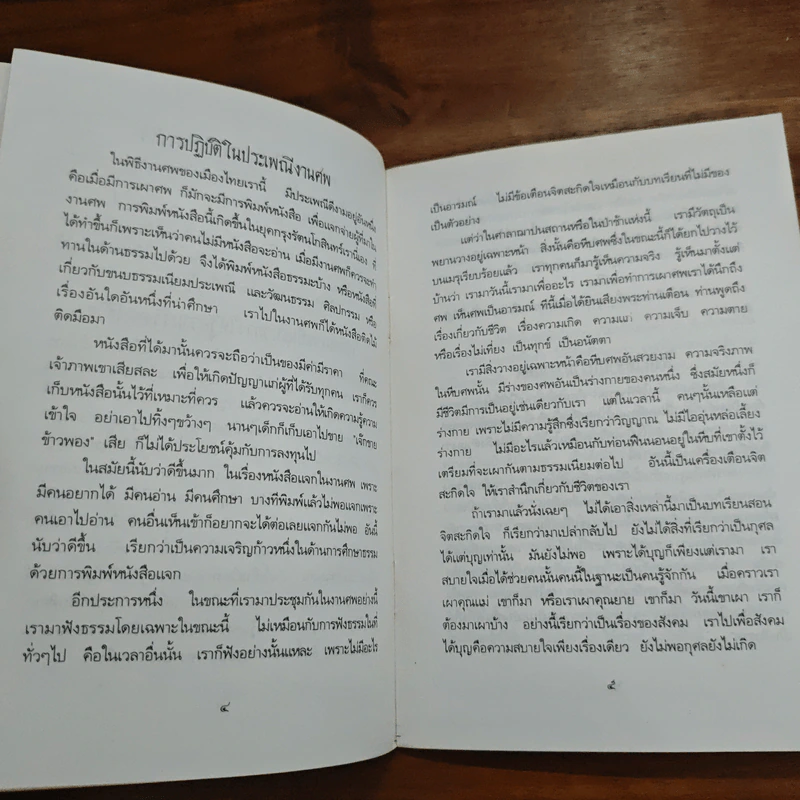 การปฏิบัติในประเพณีงานศพ
ในพิธีงานศพของเมืองไทยเรานี้ มีประเพณีดีงามอยู่อันหนึ่ง
คือเมื่อมีการเผาศพ ก็มักจะมีการพิมพ์หนังสือ เพื่อแจกจ่ายผู้ที่มาใน
งานศพ การพิมพ์หนังสือนี้เกิดขึ้นในยุคกรุงรัตนโกสินทร์เรานี่เอง ที่
ได้ทำขึ้นก็เพราะเห็นว่าคนไม่มีหนังสือจะอ่าน เมื่อมีงานศพก็ควรจะทำ
ทานในด้านธรรมไปด้วย จึงได้พิมพ์หนังสือธรรมะบ้าง หรือหนังสือที่
เกี่ยวกับขนบธรรมเนียมประเพณี และวัฒนธรรม ศิลปกรรม หรือ
เรื่องอันใดอันหนึ่งที่น่าศึกษา เราไปในงานศพก็ได้หนังสือติดไม้
ติดมือมา
หนังสือที่ได้มานั้นควรจะถือว่าเป็นของมีค่ามีราคา ที่คณะ
เจ้าภาพเขาเสียสละ เพื่อให้เกิดปัญญาแก่ผู้ที่ได้รับทุกคน เราก็ควร
เก็บหนังสือนั้นไว้ที่เหมาะที่ควร แล้วควรจะอ่านให้เกิดความรู้ความ
เข้าใจ อย่าเอาไปทิ้งๆขว้างๆ นานๆเด็กก็เก็บเอาไปขาย "เจ๊กขาย
ข้าวพอง" เสีย ก็ไม่ได้ประโยชน์คุ้มกับการลงทุนไป
ในสมัยนี้นับว่าดีขึ้นมาก ในเรื่องหนังสือแจกในงานศพ เพราะ
มีคนอยากได้ มีคนอ่าน มีคนศึกษา บางทีพิมพ์แล้วไม่พอแจกเพราะ
คนเอาไปอ่าน คนอื่นเห็นเข้าก็อยากจะได้ต่อเลยแจกกันไม่พอ อันนี้
นับว่าดีขึ้น เรียกว่าเป็นความเจริญก้าวหนึ่งในด้านการศึกษาธรรม
ด้วยการพิมพ์หนังสือแจก
อีกประการหนึ่ง ในขณะที่เรามาประชุมกันในงานศพอย่างนี้
เรามาฟังธรรมโดยเฉพาะในขณะนี้ ไม่เหมือนกับการฟังธรรมในที่
ทั่วๆไป คือในเวลาอื่นนั้น เราก็ฟังอย่างนั้นแหละ เพราะไม่มีอะไร
๔
เป็นอารมณ์ ไม่มีข้อเตือนจิตสะกิดใจเหมือนกับบทเรียนที่ไม่มีของ
เป็นตัวอย่าง
แต่ว่าในศาลาฌาปนสถานหรือในป่าช้าแห่งนี้ เรามีวัตถุเป็น
พยานวางอยู่เฉพาะหน้า สิ่งนั้นคือหีบศพซึ่งในขณะนี้ก็ได้ยกไปวางไว้
บนเมรุเรียบร้อยแล้ว เราทุกคนก็มารู้เห็นความจริง รู้เห็นมาตั้งแต่
บ้านว่า เรามาวันนี้เรามาเพื่ออะไร เรามาเพื่อทำการเผาศพเราได้นึกถึง
ศพ เห็นศพเป็นอารมณ์ ทีนี้เมื่อได้ยินเสียงพระท่านเตือน ท่านพูดถึง
เรื่องเกี่ยวกับชีวิต เรื่องความเกิด ความแก่ ความเจ็บ ความตาย
หรือเรื่องไม่เที่ยง เป็นทุกข์ เป็นอนัตตา
เรามีสิ่งวางอยู่เฉพาะหน้าคือหีบศพอันสวยงาม ความจริงภาพ
ในหีบศพนั้น มีร่างของศพอันเป็นร่างกายของคนหนึ่ง ซึ่งสมัยหนึ่งก็
มีชีวิตมีการเป็นอยู่เช่นเดียวกับเรา แต่ในเวลานี้ คนๆนั้นเหลือแต่
ร่างกาย เพราะไม่มีความรู้สึกซึ่งเรียกว่าวิญญาณ ไม่มีไออุ่นหล่อเลี้ยง
ร่างกาย ไม่มีอะไรแล้วเหมือนกับท่อนฟืนนอนอยู่ในหีบที่เขาตั้งไว้
เตรียมที่จะเผากันตามธรรมเนียมต่อไป อันนี้เป็นเครื่องเตือนจิต
สะกิดใจ ให้เราสำนึกเกี่ยวกับชีวิตของเรา
ถ้าเรามาแล้วนั่งเฉยๆ ไม่ได้เอาสิ่งเหล่านี้มาเป็นบทเรียนสอน
จิตสะกิดใจ ก็เรียกว่ามาเปล่ากลับไป ยังไม่ได้สิ่งที่เรียกว่าเป็นกุศล
ได้แต่บุญเท่านั้น มันยังไม่พอ เพราะได้บุญก็เพียงแต่เรามา เรา
สบายใจเมื่อได้ช่วยคนนั้นคนนี้ในฐานะเป็นคนรู้จักกัน เมื่อคราวเรา
เผาคุณแม่ เขาก็มา หรือเราเผาคุณยาย เขาก็มา วันนี้เขาเผา เราก็
ต้องมาเผาบ้าง อย่างนี้เรียกว่าเป็นเรื่องของสังคม เราไปเพื่อสังคม
ได้บุญคือความสบายใจเพียงเรื่องเดียว ยังไม่พอกุศลยังไม่เกิด
๕